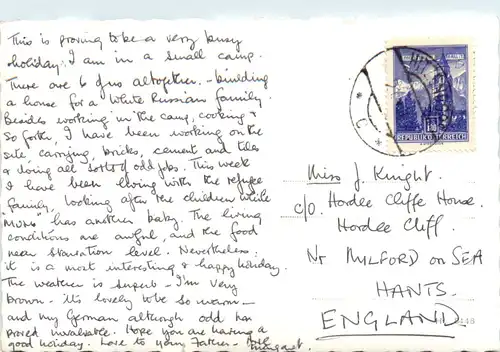 This is proving to be a very busy
holiday. I am in a small camp.
There are 6 of us altogether - building
a house for a White Russian family.
Besides working in the camp, cooking &
so forth, I have been working on the
site, carrying, bricks, cement and tiles
& doing all sorts of odd jobs. This week
I have been living with the refugee
family, looking after the children while
"MUM" has another baby. The living
conditions are awful, and the food
near starvation level. Nevertheless
it is a most interesting & happy holiday.
The weather is superb - I'm very
brown - it's lovely to be so warm -
and my German although odd has
proved invaluable. Hope you are having a
good holiday. Love to your Father -
Margaret
REPUBLIK ÖSTERREICH
Miss J. Knight.
c/o. Hordle Cliffe House.
Hordle Cliff.
Nr MILFORD on SEA
HANTS.
ENGLAND